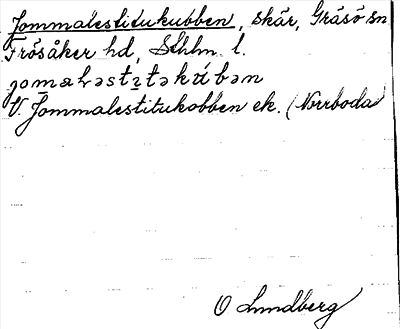 Jommalestitukubben, skär, Gräsö sn
Frösåker hd, Sthlm l.
jomaləstɪtəkúbən
V. Jommalestitukobben ek. (Norrboda
O Lundberg